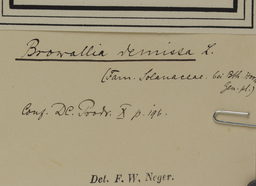 Browallia demissa L.
(Fam. Solanaceae. bei Bth. Hook
Gen. pl.)
Conf. DC. Prodr. X p. 196.
Det. F. W. Neger.